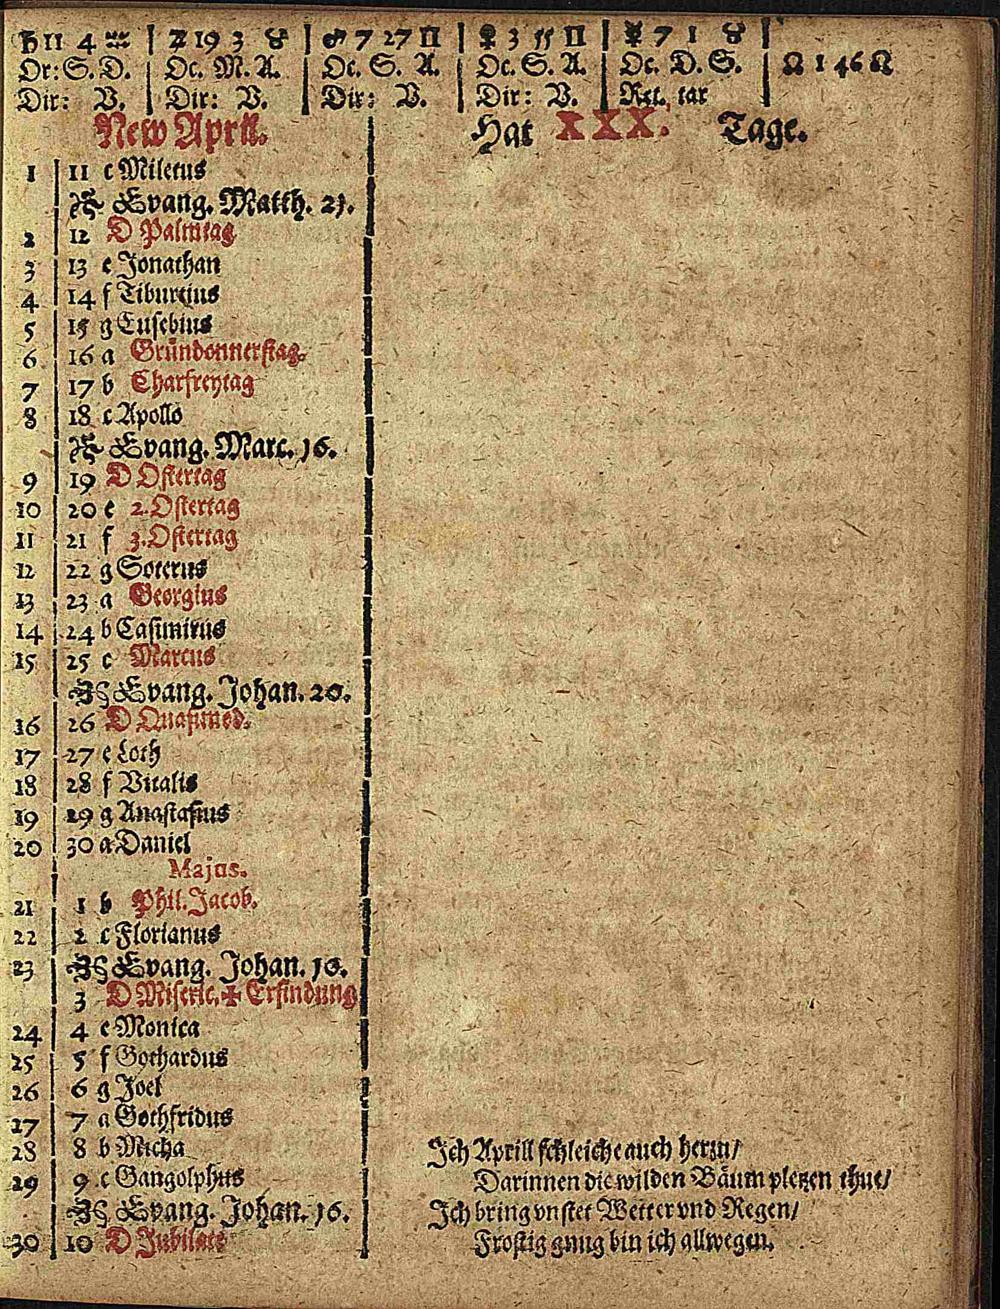 ♄ 11 4 ♒ | ♃ 19 3 ♉ | ♂ 7 27 ♊ | ♀ 3 55 ♊ | ☿ 7 1 ♉ |
Or: S. D. | Oc. M. A. | Oc. S. A. | Oc. S. A. | Oc. D. S. | ☊ 1 46 ♌
Dir: V. | Dir: V. | Dir: V. | Dir: V. | Ret. tar |
New April. Hat XXX. Tage.
1 | 11 c Miletus
Evang. Matth. 21.
2 | 12 D Palmtag
3 | 13 e Jonathan
4 | 14 f Tiburtius
5 | 15 g Eusebius
6 | 16 a Gründonnerstag.
7 | 17 b Charfreytag
8 | 18 c Apollo
Evang. Marc. 16.
9 | 19 D Ostertag
10 | 20 e 2. Ostertag
11 | 21 f 3. Ostertag
12 | 22 g Soterus
13 | 23 a Georgius
14 | 24 b Casimirus
15 | 25 c Marcus
Evang. Johan. 20.
16 | 26 D Quasimod.
17 | 27 e Loth
18 | 28 f Vitalis
19 | 29 g Anastasius
20 | 30 a Daniel
Majus.
21 | 1 b Phil. Jacob.
22 | 2 c Florianus
23 | Evang. Johan. 10.
3 D Miseric. ✠ Erfindung
24 | 4 e Monica
25 | 5 f Gothardus
26 | 6 g Joel
27 | 7 a Gothfridus
28 | 8 b Micha
29 | 9 c Gangolphus
Evang. Johan. 16.
30 | 10 D Jubilate
Ich Aprill schleiche auch herzu/
Darinnen die wilden Bäum pletzen thue/
Ich bring vnstet Wetter vnd Regen/
Frostig gnug bin ich allwegen.